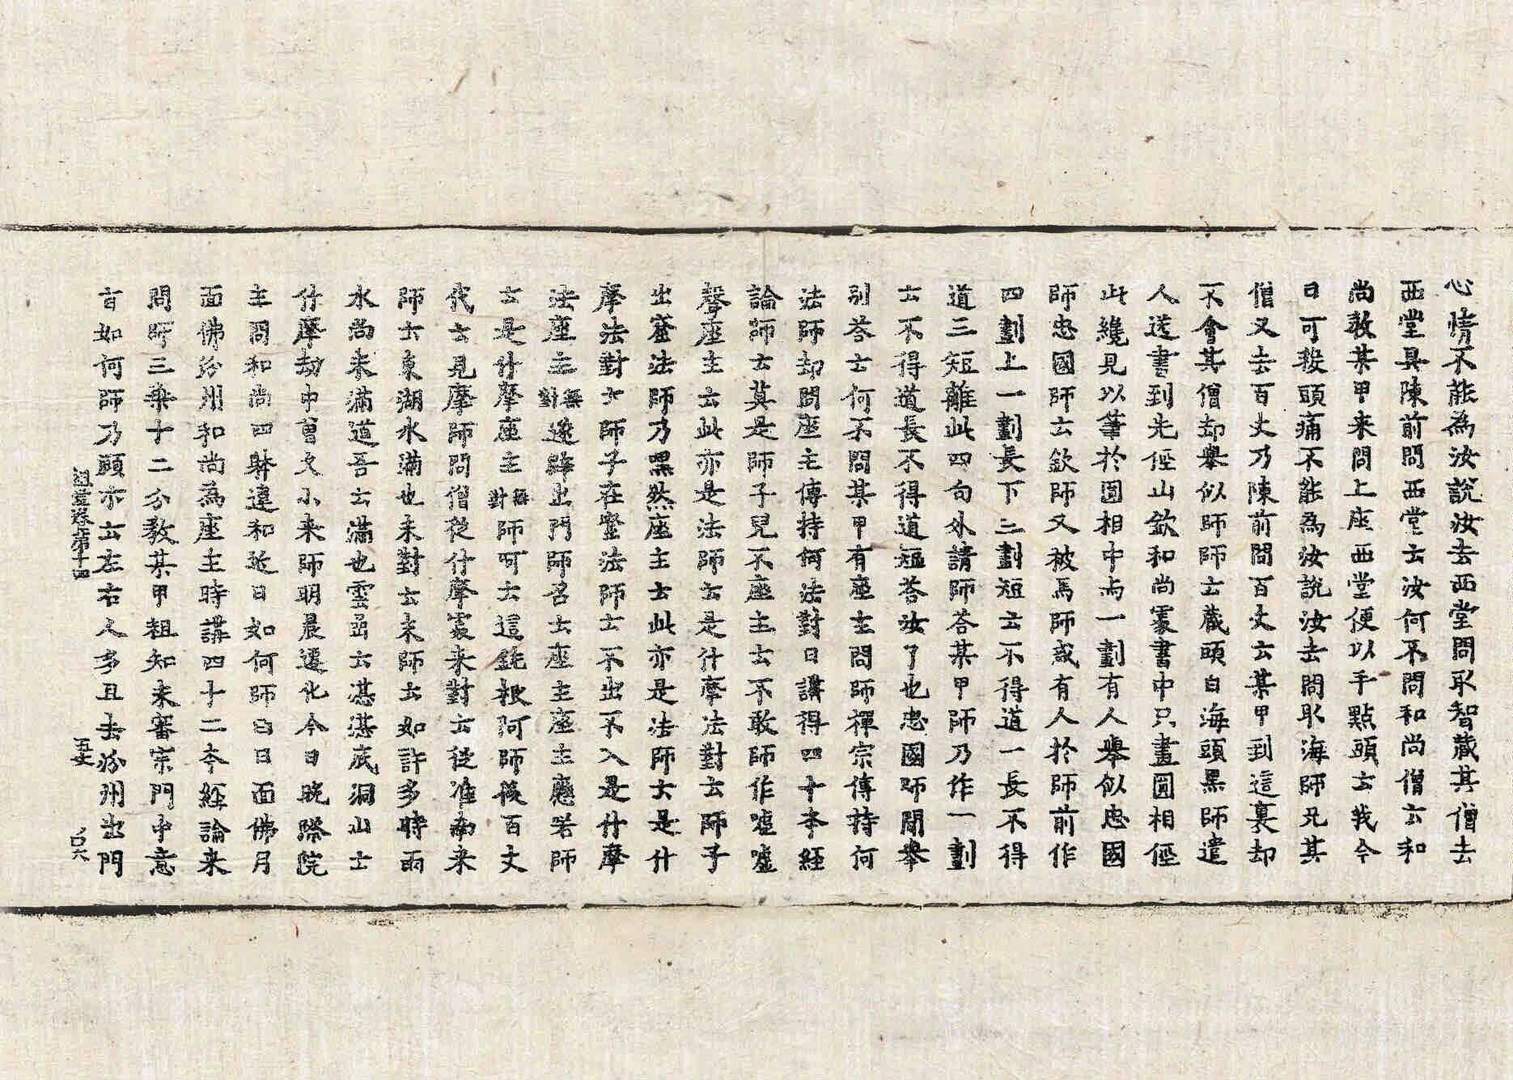 心情不能為汝說汝去西堂問取智藏其僧去
西堂具陳前問西堂云汝何不問和尚僧云和
尚教某甲来問上座西堂便以手點頭云我今
日可煞頭痛不能為汝說汝去問取海師兄其
僧又去百丈乃陳前問百丈云某甲到這裏却
不會其僧却舉似師師云藏頭白海頭黑師遣
人送書到先俓山欽和尚處書中只畫圓相俓
山纔見以筆於圓相中与一劃有人舉似忠國
師忠國師云欽師又被馬師或有人於師前作
四劃上一劃長下三劃短云不得道一長不得
道三短離此四句外請師荅某甲師乃作一劃
云不得道長不得道短荅汝了也忠國師聞舉
別荅云何不問某甲有座主問師禪宗傳持何
法師却問座主傳持何法對曰講得四十本經
論師云莫是師子兒不座主云不敢師作噓噓
聲座主云此亦是法師云是什摩法對云師子
出窟法師乃默然座主云此亦是法師云是什
摩法對云師子在窟法師云不出不入是什摩
法座主無對遂辞出門師召云座主座主應喏師
云是什摩座主無對師呵云這鈍根阿師後百丈
代云見摩師問僧從什摩處来對云從淮南来
師云東湖水滿也未對云未師云如許多時雨
水尚未滿道吾云滿也雲嵒云湛湛底洞山云
什摩劫中曾欠小来師明晨遷化今日晚際院
主問和尚四躰違和近日如何師曰日面佛月
面佛汾州和尚為座主時講四十二本經論来
問師三乘十二分教某甲粗知未審宗門中意
旨如何師乃顧示云左右人多且去汾州出門
祖堂卷第十四